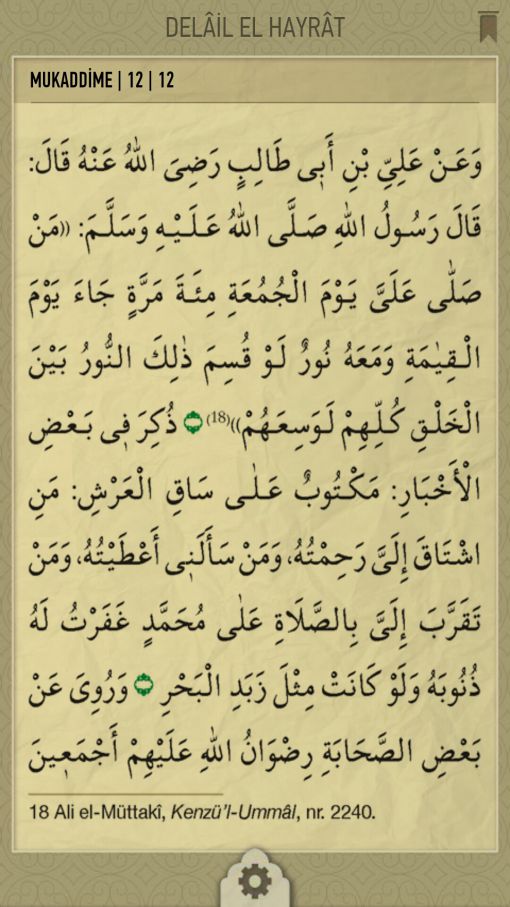 DELÂİL EL HAYRÂT
MUKADDİME | 12 | 12
وَعَنْ عَلِيِّ بْنِ أَبٖى طَالِبٍ رَضِىَ اللّٰهُ عَنْهُ قَالَ:
قَالَ رَسُولُ اللّٰهِ صَلَّى اللّٰهُ عَلَيْهِ وَسَلَّمَ: ((مَنْ
صَلّٰى عَلَىَّ يَوْمَ الْجُمُعَةِ مِئَةَ مَرَّةٍ جَاءَ يَوْمَ
الْقِيٰمَةِ وَمَعَهُ نُورٌ لَوْ قُسِمَ ذٰلِكَ النُّورُ بَيْنَ
الْخَلْقِ كُلِّهِمْ لَوَسِعَهُمْ))(18) ذُكِرَ فٖى بَعْضِ
الْأَخْبَارِ: مَكْتُوبٌ عَلٰى سَاقِ الْعَرْشِ: مَنِ
اشْتَاقَ إِلَىَّ رَحِمْتُهُ، وَمَنْ سَأَلَنٖى أَعْطَيْتُهُ، وَمَنْ
تَقَرَّبَ إِلَىَّ بِالصَّلَاةِ عَلٰى مُحَمَّدٍ غَفَرْتُ لَهُ
ذُنُوبَهُ وَلَوْ كَانَتْ مِثْلَ زَبَدِ الْبَحْرِ وَرُوِىَ عَنْ
بَعْضِ الصَّحَابَةِ رِضْوَانُ اللّٰهِ عَلَيْهِمْ أَجْمَعٖينَ
18 Ali el-Müttakî, Kenzü’l-Ummâl, nr. 2240.